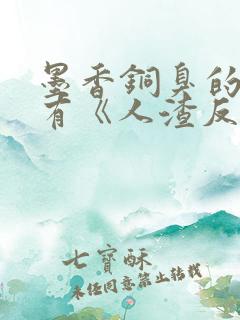 墨香銅臭的
有《人渣反
七寶酥
未任同意禁止轉載